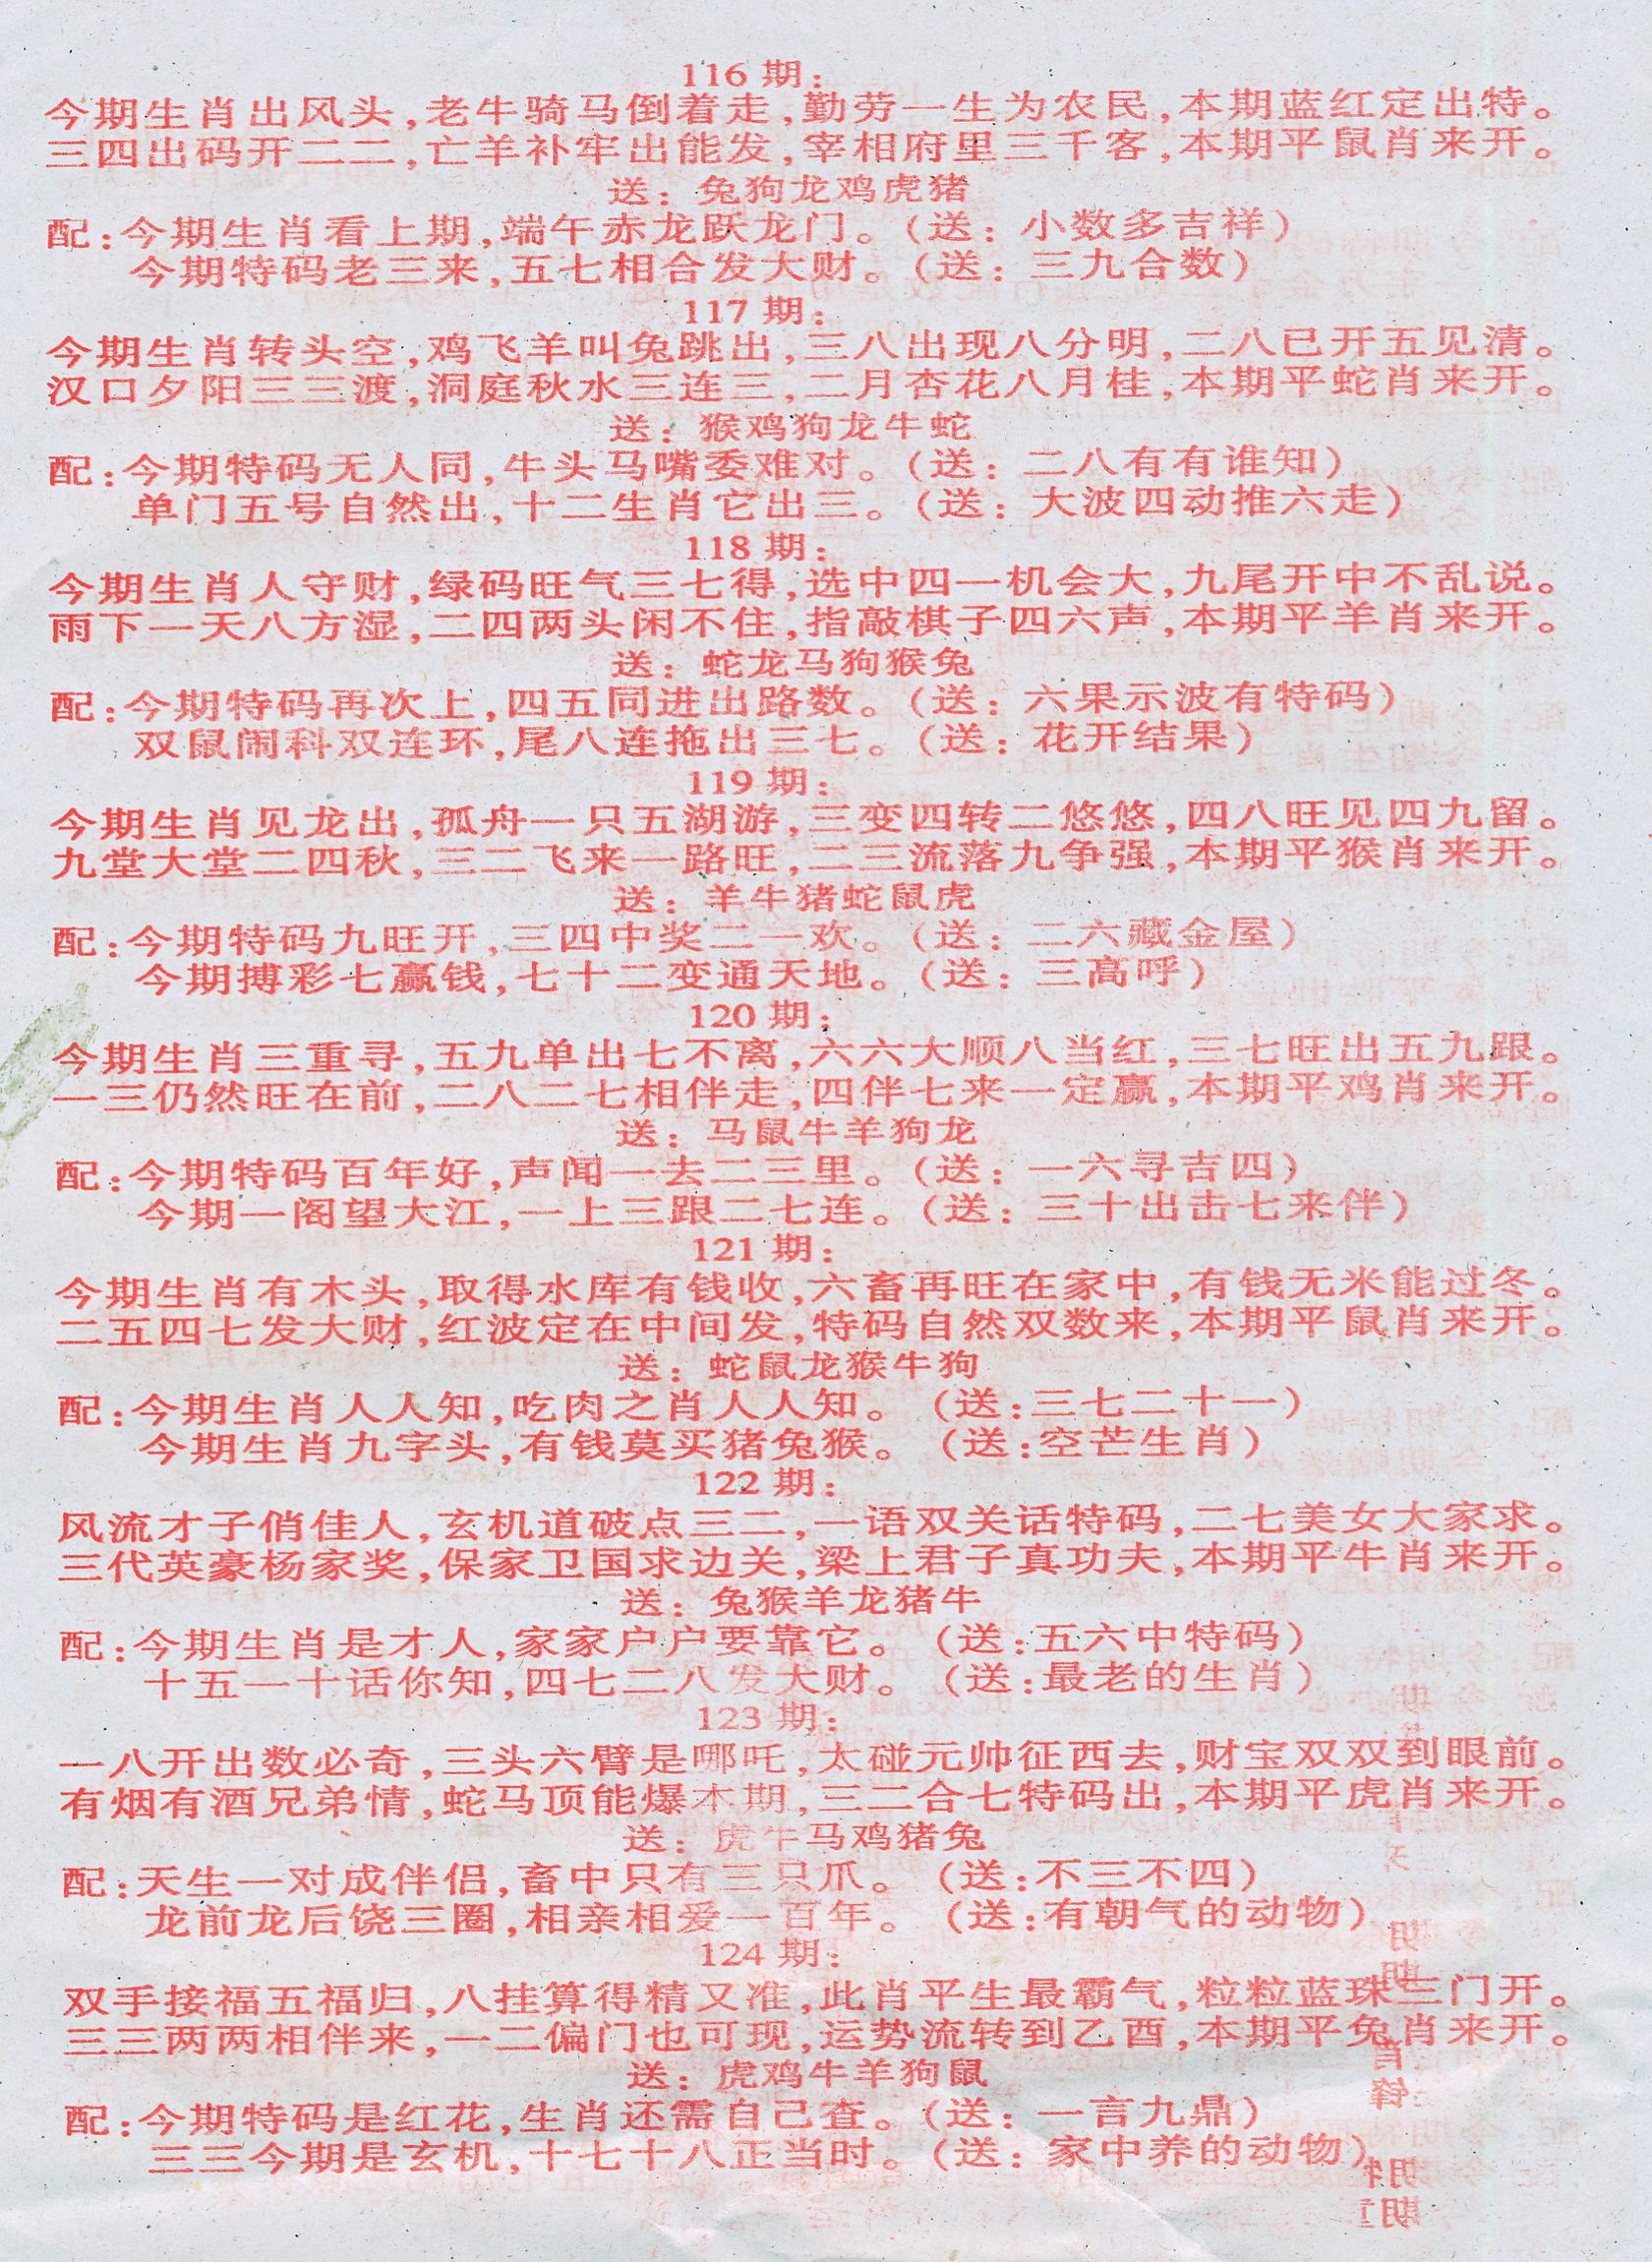 116 期:
今期生肖出风头,老牛骑马倒着走,勤劳一生为农民,本期蓝红定出特。
三四出码开二二,亡羊补牢出能发,宰相府里三千客,本期平鼠肖来开。
送: 兔狗龙鸡虎猪
配:今期生肖看上期,端午赤龙跃龙门。(送: 小数多吉祥)
今期特码老三来,五七相合发大财。(送: 三九合数)
117 期:
今期生肖转头空,鸡飞羊叫兔跳出,三八出现八分明,二八已开五见清。
汉口夕阳三三渡,洞庭秋水三连三,二月杏花八月桂,本期平蛇肖来开。
送: 猴鸡狗龙牛蛇
配:今期特码无人同,牛头马嘴委难对。(送: 二八有有谁知)
单门五号自然出,十二生肖它出三。(送: 大波四动推六走)
118 期:
今期生肖人守财,绿码旺气三七得,选中四一机会大,九尾开中不乱说。
雨下一天八方湿,二四两头闲不住,指敲棋子四六声,本期平羊肖来开。
送: 蛇龙马狗猴兔
配:今期特码再次上,四五同进出路数。(送: 六果示波有特码)
双鼠闹科双连环,尾八连拖出三七。(送: 花开结果)
119 期:
今期生肖见龙出,孤舟一只五湖游,三变四转二悠悠,四八旺见四九留。
九堂大堂二四秋,三二飞来一路旺,二三流落九争强,本期平猴肖来开。
送: 羊牛猪蛇鼠虎
配:今期特码九旺开,三四中奖二一欢。(送: 二六藏金屋)
今期搏彩七赢钱,七十二变通天地。(送: 三高呼)
120 期:
今期生肖三重寻,五九单出七不离,六六大顺八当红,三七旺出五九跟。
一三仍然旺在前,二八二七相伴走,四伴七来一定赢,本期平鸡肖来开。
送: 马鼠牛羊狗龙
配:今期特码百年好,声闻一去二三里。(送: 一六寻吉四)
今期一阁望大江,一上三跟二七连。(送: 三十出击七来伴)
121 期:
今期生肖有木头,取得水库有钱收,六畜再旺在家中,有钱无米能过冬。
二五四七发大财,红波定在中间发,特码自然双数来,本期平鼠肖来开。
送: 蛇鼠龙猴牛狗
配:今期生肖人人知,吃肉之肖人人知。(送:三七二十一)
今期生肖九字头,有钱莫买猪兔猴。(送:空芒生肖)
122 期:
风流才子俏佳人,玄机道破点三二,一语双关话特码,二七美女大家求。
三代英豪杨家奖,保家卫国求边关,梁上君子真功夫,本期平牛肖来开。
送: 兔猴羊龙猪牛
配:今期生肖是才人,家家户户要靠它。(送:五六中特码)
十五一十话你知,四七二八发大财。(送:最老的生肖)
123 期:
一八开出数必奇,三头六臂是哪吒,太碰元帅征西去,财宝双双到眼前。
有烟有酒兄弟情,蛇马顶能爆本期,三二合七特码出,本期平虎肖来开。
送: 虎牛马鸡猪兔
配:天生一对成伴侣,畜中只有三只爪。(送:不三不四)
龙前龙后饶三圈,相亲相爱一百年。(送:有朝气的动物)
124 期:
双手接福五福归,八挂算得精又准,此肖平生最霸气,粒粒蓝珠三门开。
三三两两相伴来,一二偏门也可现,运势流转到乙酉,本期平兔肖来开。
送: 虎鸡牛羊狗鼠
配:今期特码是红花,生肖还需自己查。(送: 一言九鼎)
三三今期是玄机,十七十八正当时。(送: 家中养的动物)